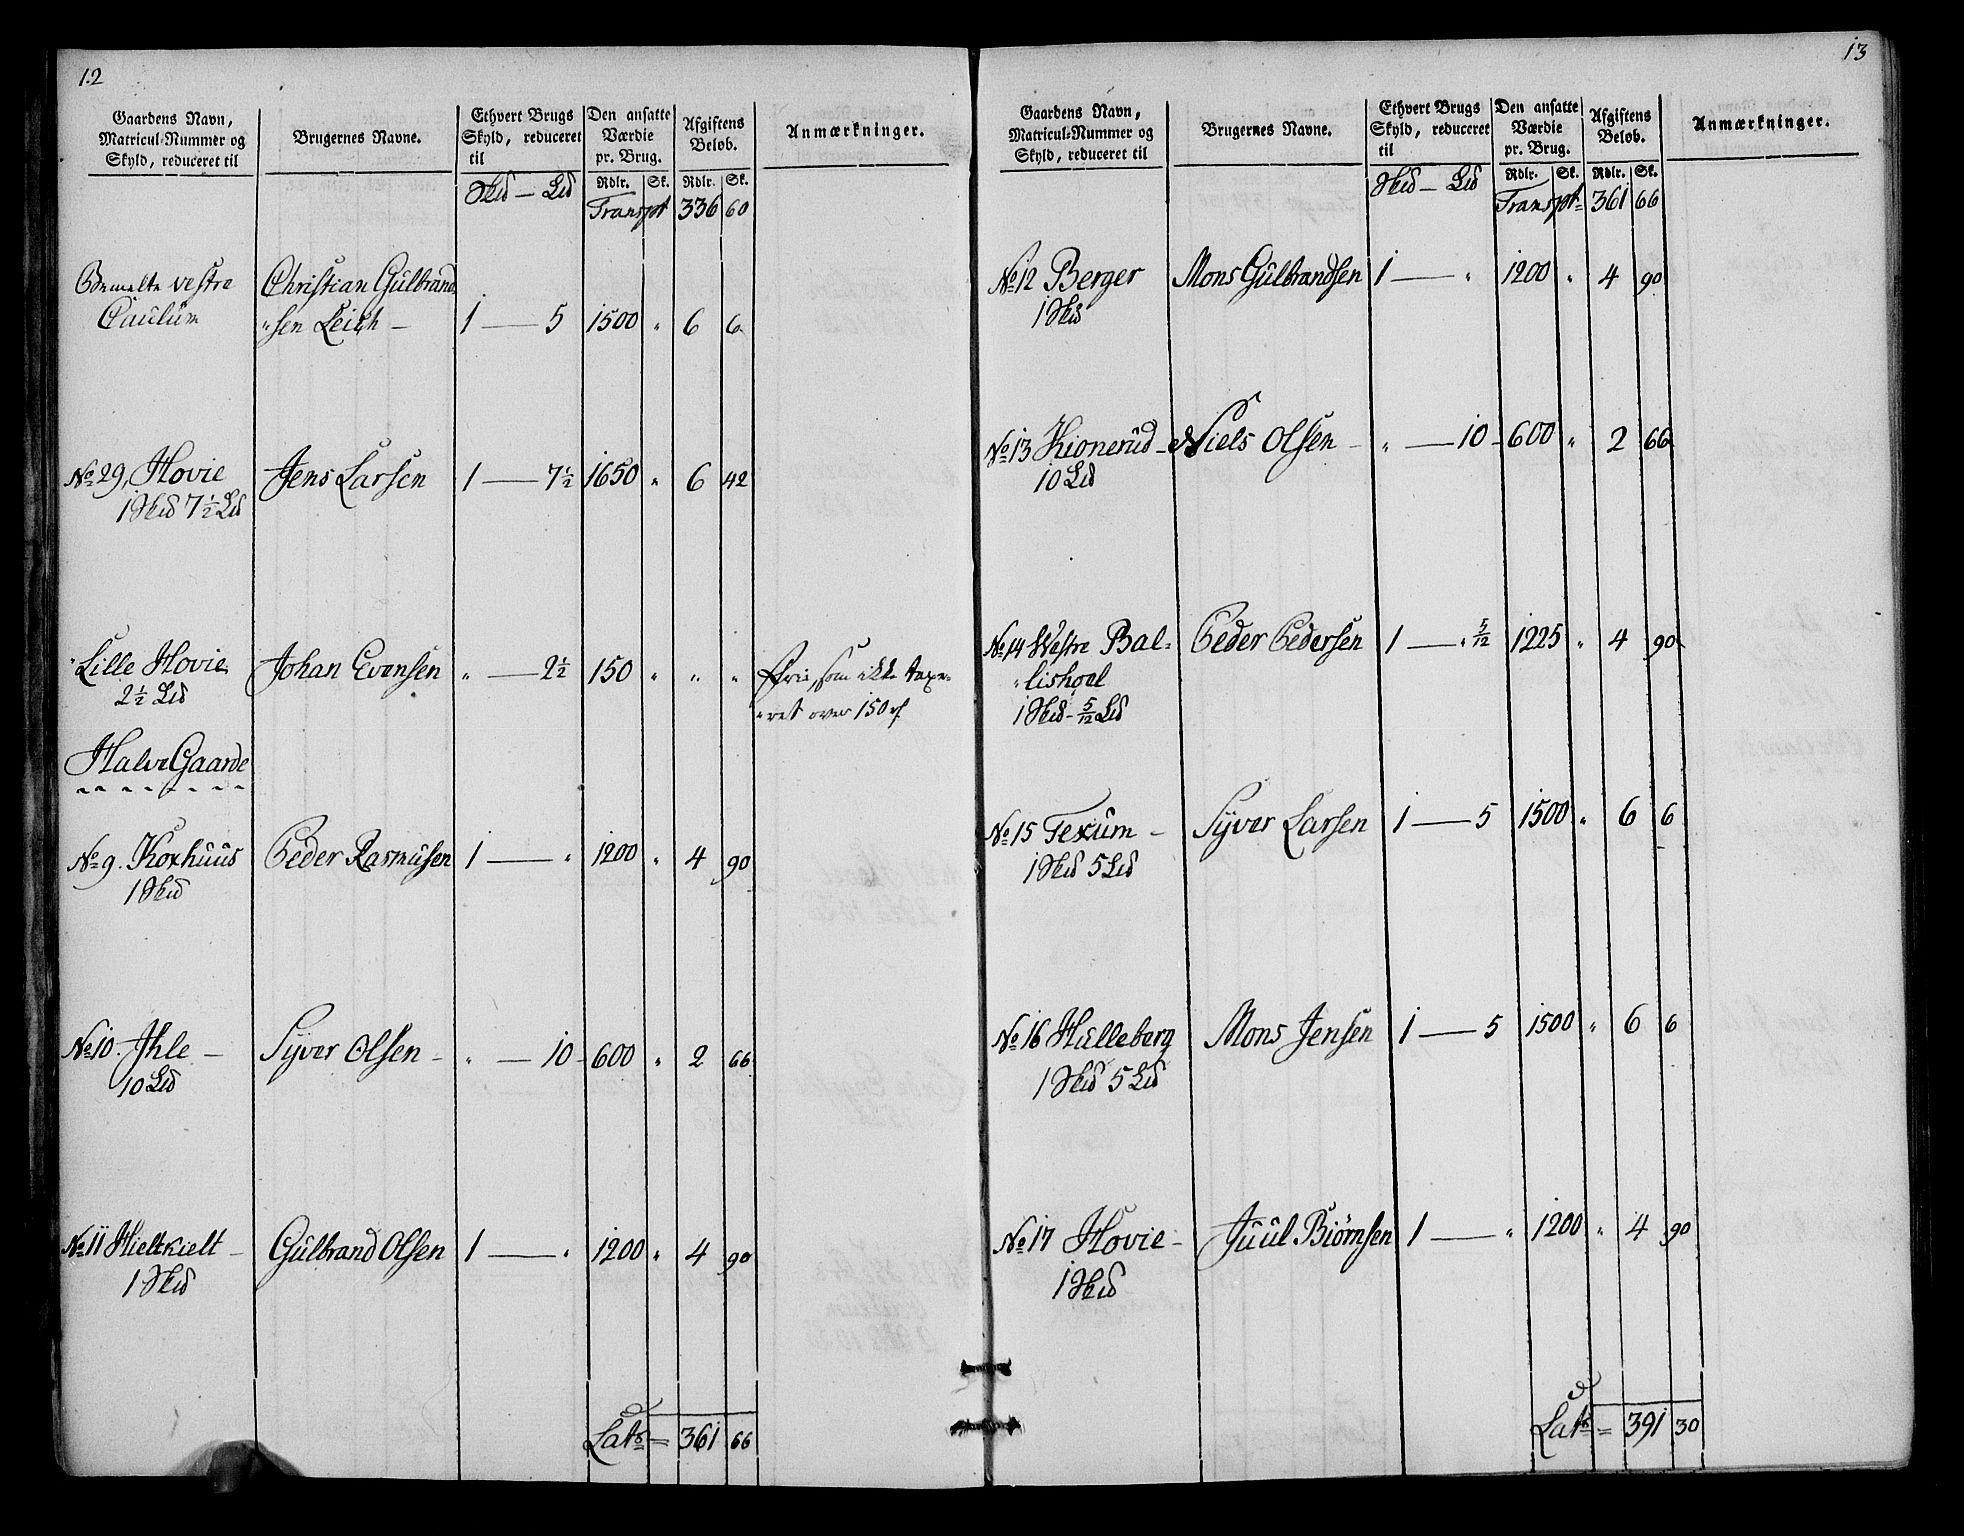 12
Gaardens Navn,
Matricul-Nummer og
Skyld, reduceret til
Brugernes Navne.
Ethvert Brugs
Skyld, reduceret
til
Den ansatte
Værdie
pr. Brug.
Afgiftens
Beløb.
Anmærkninger.
Skd — Ld
Rdlr. Sk. Rdlr. Sk.
Transpt 336 60
Bemelte vestre Christian Gulbrand
Caulum „sen Leich — 1 — 5 1500 „ 6 6
No 29, Hovie Jens Larsen 1 — 7½ 1650 „ 6 42
1 Skd 7½ Ld
Lille Hovie Johan Evensen „ — 2½ 150 „ „ „ Frie, som ikke taxe-
2½ Ld „ret over 150 rd
Halve Gaarde
No 9. Koxhuus Peder Rasmusen 1 — „ 1200 „ 4 90
1 Skd
No 10. Ihle — Syver Olsen — „ — 10 - 600 „ 2 66
10 Ld
No 11 Hieltkielt — Gulbrand Olsen 1 — „ 1200 „ 4 90
1 Skd
Lats = 361 66
13
Gaardens Navn,
Matricul-Nummer og
Skyld, reduceret til
Brugernes Navne.
Ethvert Brugs
Skyld, reduceret
til
Den ansatte
Værdie
pr. Brug.
Afgiftens
Beløb.
Anmærkninger.
Skd — Ld
Rdlr. Sk. Rdlr. Sk.
Transpt 361 66
No 12 Berger Mons Gulbrandsen 1 — „ 1200 „ 4 90
1 Skd
No 13 Kionerud — Niels Olsen — „ — 10 - 600 „ 2 66
10 Ld
No 14 Westre Bal- Peder Pedersen 1 — „ 5/12 1225 „ 4 90
„lishoel
1 Skd - 5/12 Ld
No 15 Texum — Syver Larsen 1 — 5 1500 „ 6 6
1 Skd 5 Ld
No 16 Hulleberg Mons Jensen 1 — 5 1500 „ 6 6
1 Skd 5 Ld
No 17 Hovie — Juul Biørnsen 1 — „ 1200 „ 4 90
1 Skd
Lats = 391 30